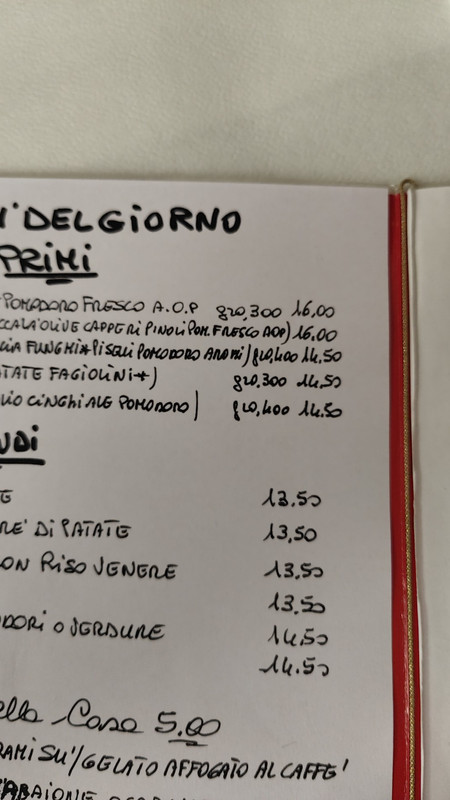 I' DEL GIORNO
PRIMI
POMODORO FRESCO A.O.P gr0,300 16,00
CCALA' OLIVE CAPPERI PINOLI POM. FRESCO AOP) 16,00
LIA FUNGHI* PISELLI POMODORO AROMI) gr0,400 14.50
TATE FAGIOLINI*) gr0,300 14,50
CINGHIALE POMODORO) gr0,400 14.50
NDI
E 13.50
RE' DI PATATE 13,50
ON RISO VENERE 13,50
13,50
DORI O VERDURE 14,50
14.50
ella Casa 5.00
RAMISU'/GELATO AFFOGATO AL CAFFE'